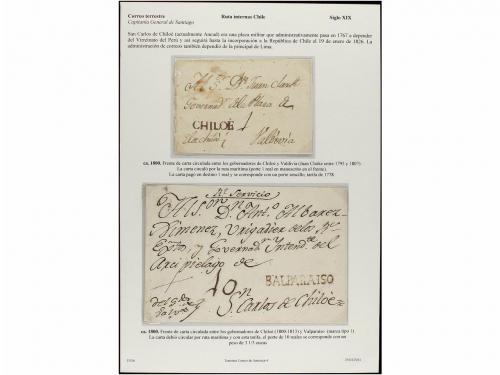 Correo terrestre Ruta internas Chile Siglo XIX
Capitanía General de Santiago
San Carlos de Chiloé (actualmente Ancud) era una plaza militar que administrativamente pasa en 1767 a depender
del Virreinato del Perú y así seguirá hasta la incorporación a la República de Chile el 19 de enero de 1826. La
administración de correos también dependió de la principal de Lima.
Juan Clark
Governador de la Plaza de
CHILOÈ
Valdivia
ca. 1800. Frente de carta circulada entre los gobernadores de Chiloé y Valdivia (Juan Clarke entre 1795 y 180?).
La carta circuló por la ruta marítima (porte 1 real en manuscrito en el frente).
La carta pago en destino 1 real y se corresponde con un porte sencillo, tarifa de 1778
Rl. Servicio
D. Antº. Albarez
Ximenez, Brigadier de los Rs.
Extos. y Governador Intendte. del
Arcipielago de
10
BALPARAISO
S. Carlos de Chiloe
ca. 1800. Frente de carta circulada entre los gobernadores de Chiloé (1800-1813) y Valparaíso (marca tipo 1).
La carta debió circular por ruta marítima y con esta tarifa, el porte de 10 reales se corresponde con un
peso de 3 1/3 onzas